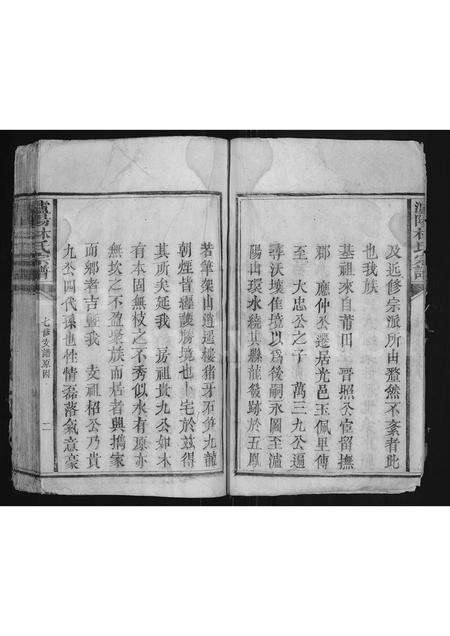 及近修宗派所由釐然不紊者此
也我族
基祖來自莆田 晋照公宦留撫
郡 應仲公遷居光邑玉佩里傳
至 大忠公之子 萬三九公遍
尋沃壤佳境以為後嗣永圖至瀘
陽山環水繞其縣龍發跡於五鳳
瀘陽林氏宗譜
若筆架山逍遥樓猪牙石爭九龍
朝煙皆經護勝境也卜宅於玆得
其所矣延我 房祖貴九公如木
有本固無枝之不秀似水有源亦
無坎之不盈聚族而居者與搢家
而鄉者吉暨我 支祖榴公乃貴
九公四代孫也性情磊落氣意豪
瀘陽林氏宗譜
七修支譜原序
二